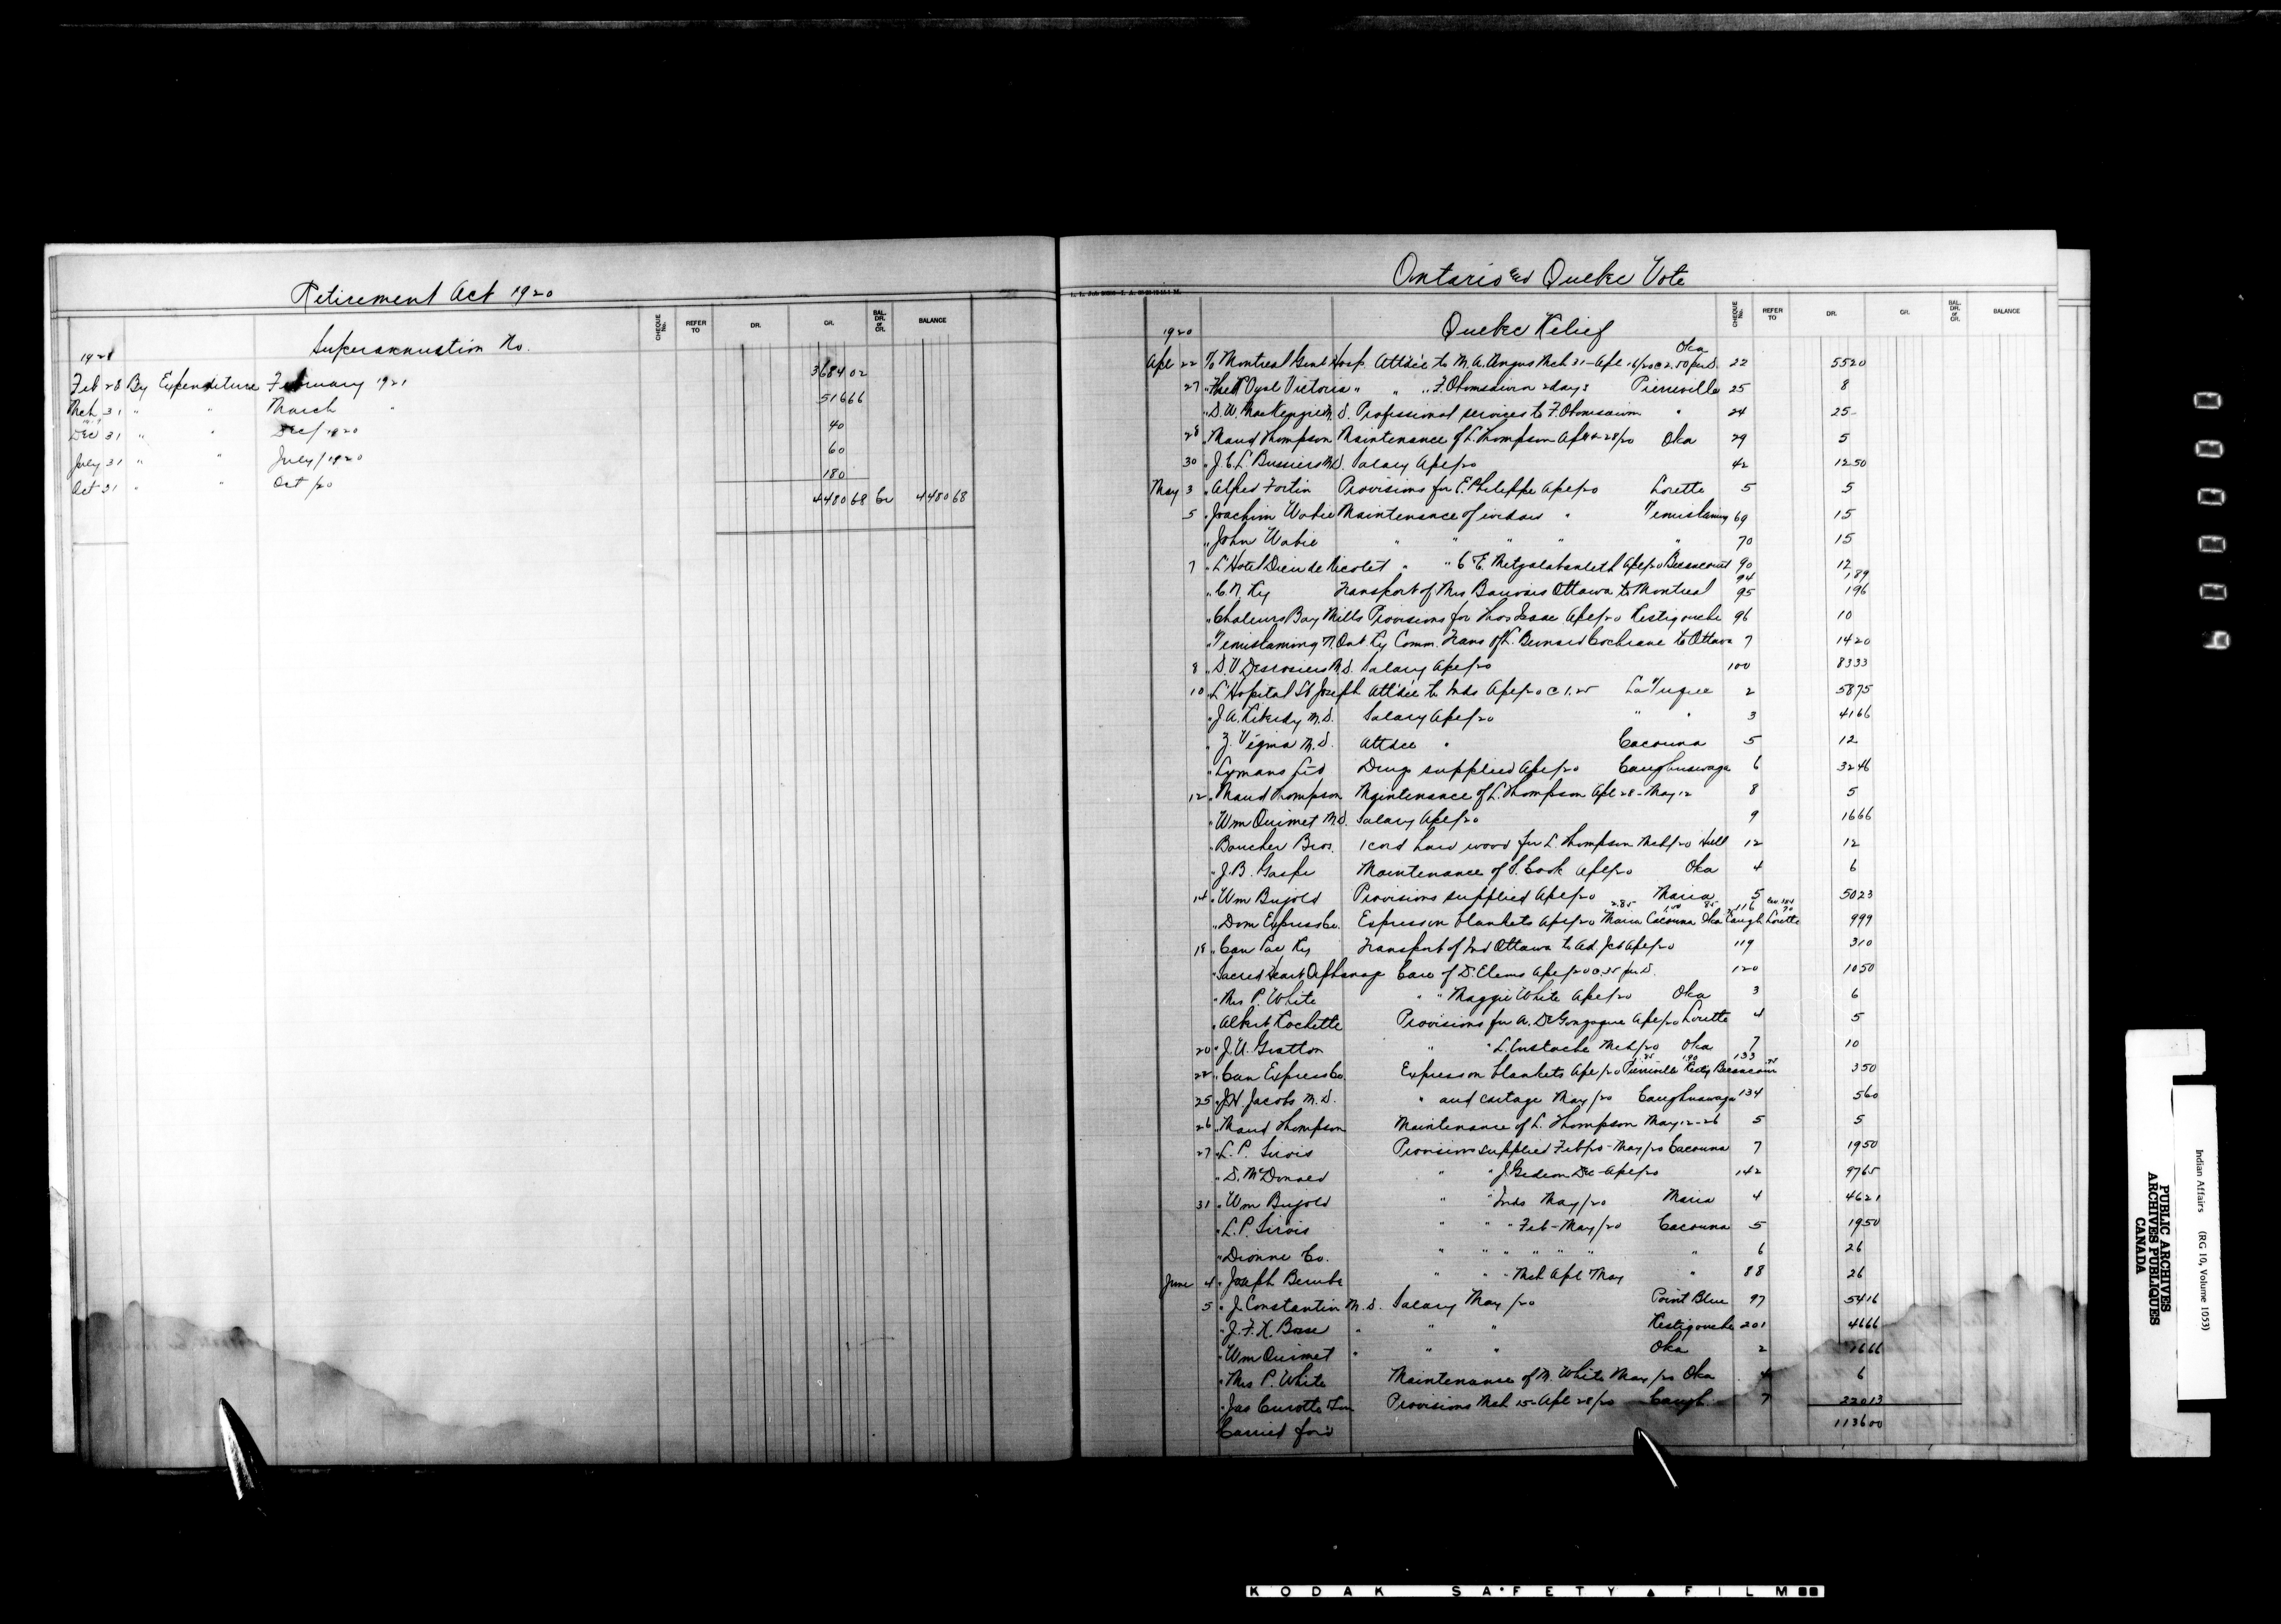 Retirement Act 1920
CHEQUE No. REFER TO DR. CR. BAL. DR. or CR. BALANCE
Superannuation No.
Feb 28 By Expenditure February 1921 3684 02
Mch 31 " " March " 516 66
Dec 31 " " Dec/1920 40
July 31 " " July/1920 60
Oct 31 " " Oct/20 180
4480 68 Cr 4480 68
Ontario and Quebec Vote
CHEQUE No. REFER TO DR. CR. BAL. DR. or CR. BALANCE
1920 Quebec Relief
Oka
Apl 22 To Montreal Genl Hosp. Attdce to M.A. Angus Mch 31-Apl 16/20 @ 2.50 per D. 22 55 20
27 " Royal Victoria " " " F. 2 days Pierreville 25 8
" D.W. MacKenzie M.D. Professional services to F. " 24 25
28 " Maud Thompson Maintenance of L. Thompson Apl 14-28/20 Oka 29 5
30 " J.C.L. Bussiere M.D. Salary Apl/20 42 12 50
May 3 " Alfred Fortin Provisions for E. Philippe Apl/20 Lorette 5 5
5 " Joachim Wabie Maintenance of " Temiskaming 69 15
" John Wabie " " " " " 70 15
7 " L'Hotel Dieu de Nicolet " " C.E. Apl/20 Becancour 90 12
94 1 89
" C.N. Ry Transport of Mrs Bauvais Ottawa to Montreal 95 1 96
" Chaleurs Bay Mills Provisions for Thos Isaac Apl/20 Restigouche 96 10
" Temiskaming N. Ont Ry Comm. Trans of L. Bernard Cochrane to Ottawa 7 14 20
8 " D.V. Desrosiers M.D. Salary Apl/20 100 83 33
10 " L'Hopital St Joseph Attdce to Inds Apl/20 @ 1.25 La Tuque 2 58 75
" J.A. M.D. Salary Apl/20 " " 3 41 66
" Z. Vezina M.D. Attdce " Cacouna 5 12
" Lymans Ltd Drugs supplied Apl/20 Caughnawaga 6 32 46
12 " Maud Thompson Maintenance of L. Thompson Apl 28-May 12 8 5
" Wm Ouimet M.D. Salary Apl/20 9 16 66
" Boucher Bros. 1 cord hard wood for L. Thompson Mch/20 Hull 12 12
" J.B. Gaspe Maintenance of S. Cook Apl/20 Oka 4 6
14 " Wm Bujold Provisions supplied Apl/20 Maria 5 50 23
2.85 1.00 85 116 70
" Dom Express Co. Express on blankets Apl/20 Maria Cacouna Oka Caugh Lorette 9 99
18 " Can Pac Ry Transport of Ind Ottawa to Ad Jct Apl/20 119 3 10
" Sacred Heart Orphanage Care of D. Elems Apl/20 @ .35 per D. 120 10 50
" Mrs P. White " " Maggie White Apl/20 Oka 3 6
" Albert Rochette Provisions for A. De Gonzague Apl/20 Lorette 4 5
20 " J.U. Gratton " " L. Eustache Mch/20 Oka 7 10
.85 1.90 133 .75
22 " Can Express Co. Express on blankets Apl/20 Pierreville Restig Becancour 3 50
25 " J.H. Jacobs M.D. " and cartage May/20 Caughnawaga 134 5 60
26 " Maud Thompson Maintenance of L. Thompson May 12-26 5 5
27 " L.P. Sirois Provisions supplied Feb/20-May/20 Cacouna 7 19 50
" D. McDonald " " J. Gideon Dec-Apl/20 142 97 65
31 " Wm Bujold " " Inds May/20 Maria 4 46 21
" L.P. Sirois " " " Feb-May/20 Cacouna 5 19 50
" Dionne Co. " " " " " " " 6 26
June 4 " Joseph Berube " " " Mch Apl May " 88 26
5 " J. Constantin M.D. Salary May/20 Point Blue 97 54 16
" J.F.H. " " " Restigouche 201 46 66
" Wm Ouimet " " " Oka 2 16 66
" Mrs P. White Maintenance of M. White May/20 Oka 4 6
" Jas Curotte Provisions Mch 15-Apl 28/20 Caugh. 7 220 13
Carried for'd 1136 00
00009
Indian Affairs (RG 10, Volume 1053)
PUBLIC ARCHIVES
ARCHIVES PUBLIQUES
CANADA
KODAK SAFETY FILM